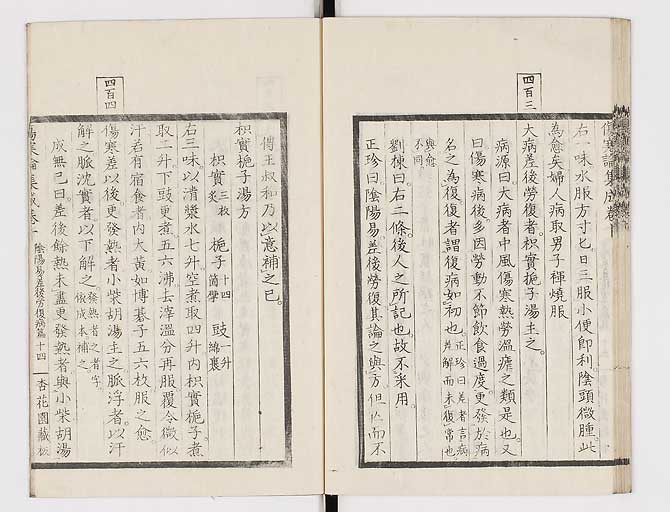 四百三
傷寒論集成卷
右一味水服方寸匕日三服小便即利陰頭微腫此
為愈矣婦人病取男子褌燒服
大病差後勞復者枳實梔子湯主之
病源曰大病者中風傷寒熱勞溫瘧之類是也又
曰傷寒病後多因勞動不節飲食過度更發於病
名之為復復者謂復病如初也正珍曰差者言病差解而未復常也
與愈不同
劉棟曰右二條後人之所記也故不采用
正珍曰陰陽易差後勞復其論之與方但佐而不
四百四
傳王叔和乃以意補之已
枳實梔子湯方
枳實三枚炙 梔子十四箇擘 豉一升綿裹
右三味以清漿水七升空煮取四升内枳實梔子煮
取二升下豉更煮五六沸去滓溫分再服覆令微似
汗若有宿食者内大黃如博碁子五六枚服之愈
傷寒差以後更發熱者小柴胡湯主之脈浮者以汗
解之脈沈實者以下解之發熱者之者字依成本補之
成無已曰差後餘熱未盡更發熱者與小柴胡湯
傷寒論集成卷十 陰陽易差後勞復病篇 十四 杏花園藏板